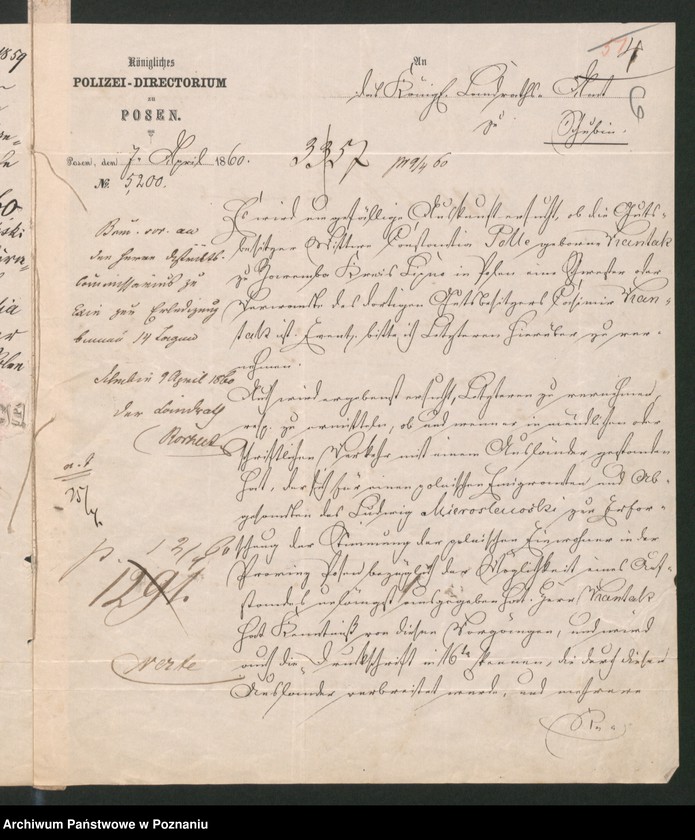 1859
Königliches
POLIZEI-DIRECTORIUM
zu
POSEN.
Posen, den 7. April 1860.
№. 5200.
An
das Königl. Landraths-Amt
zu
Schubin.
3357
4
Es wird um gefällige Auskunft ersucht, ob die Guts-
besitzer Wittwe Constantia geborne Kantak
zu Kreis in Polen eine Schwester oder
Verwandte des dortigen Gutsbesitzers Casimir Kan-
tak ist. Event. bitte ich Letzteren hierüber zu ver-
nehmen.
Auch wird ergebenst ersucht, Letzteren zu vernehmen,
resp. zu ermitteln, ob und wann er in mündlichem oder
schriftlichem Verkehr mit einem Ausländer gestanden
hat, der sich für einen polnischen Emigranten und Ab-
gesandten des Ludwig Mieroslawski zur Erfor-
schung der Stimmung der polnischen Einwohner in der
Provinz Posen bezüglich der Möglichkeit eines Auf-
standes unlängst ausgegeben hat. Herr Kantak
hat Kenntniß von diesen Vorgängen, und wird
auch die Druckschrift kennen, die durch diesen
Ausländer verbreitet wurde, und mehrere
den Herrn Districts-
Commissarius zu
Exin zur Erledigung
binnen 14 Tagen
Schubin 9 April 1860
Der Landrath
1291.
verte
Archiwum Państwowe w Poznaniu